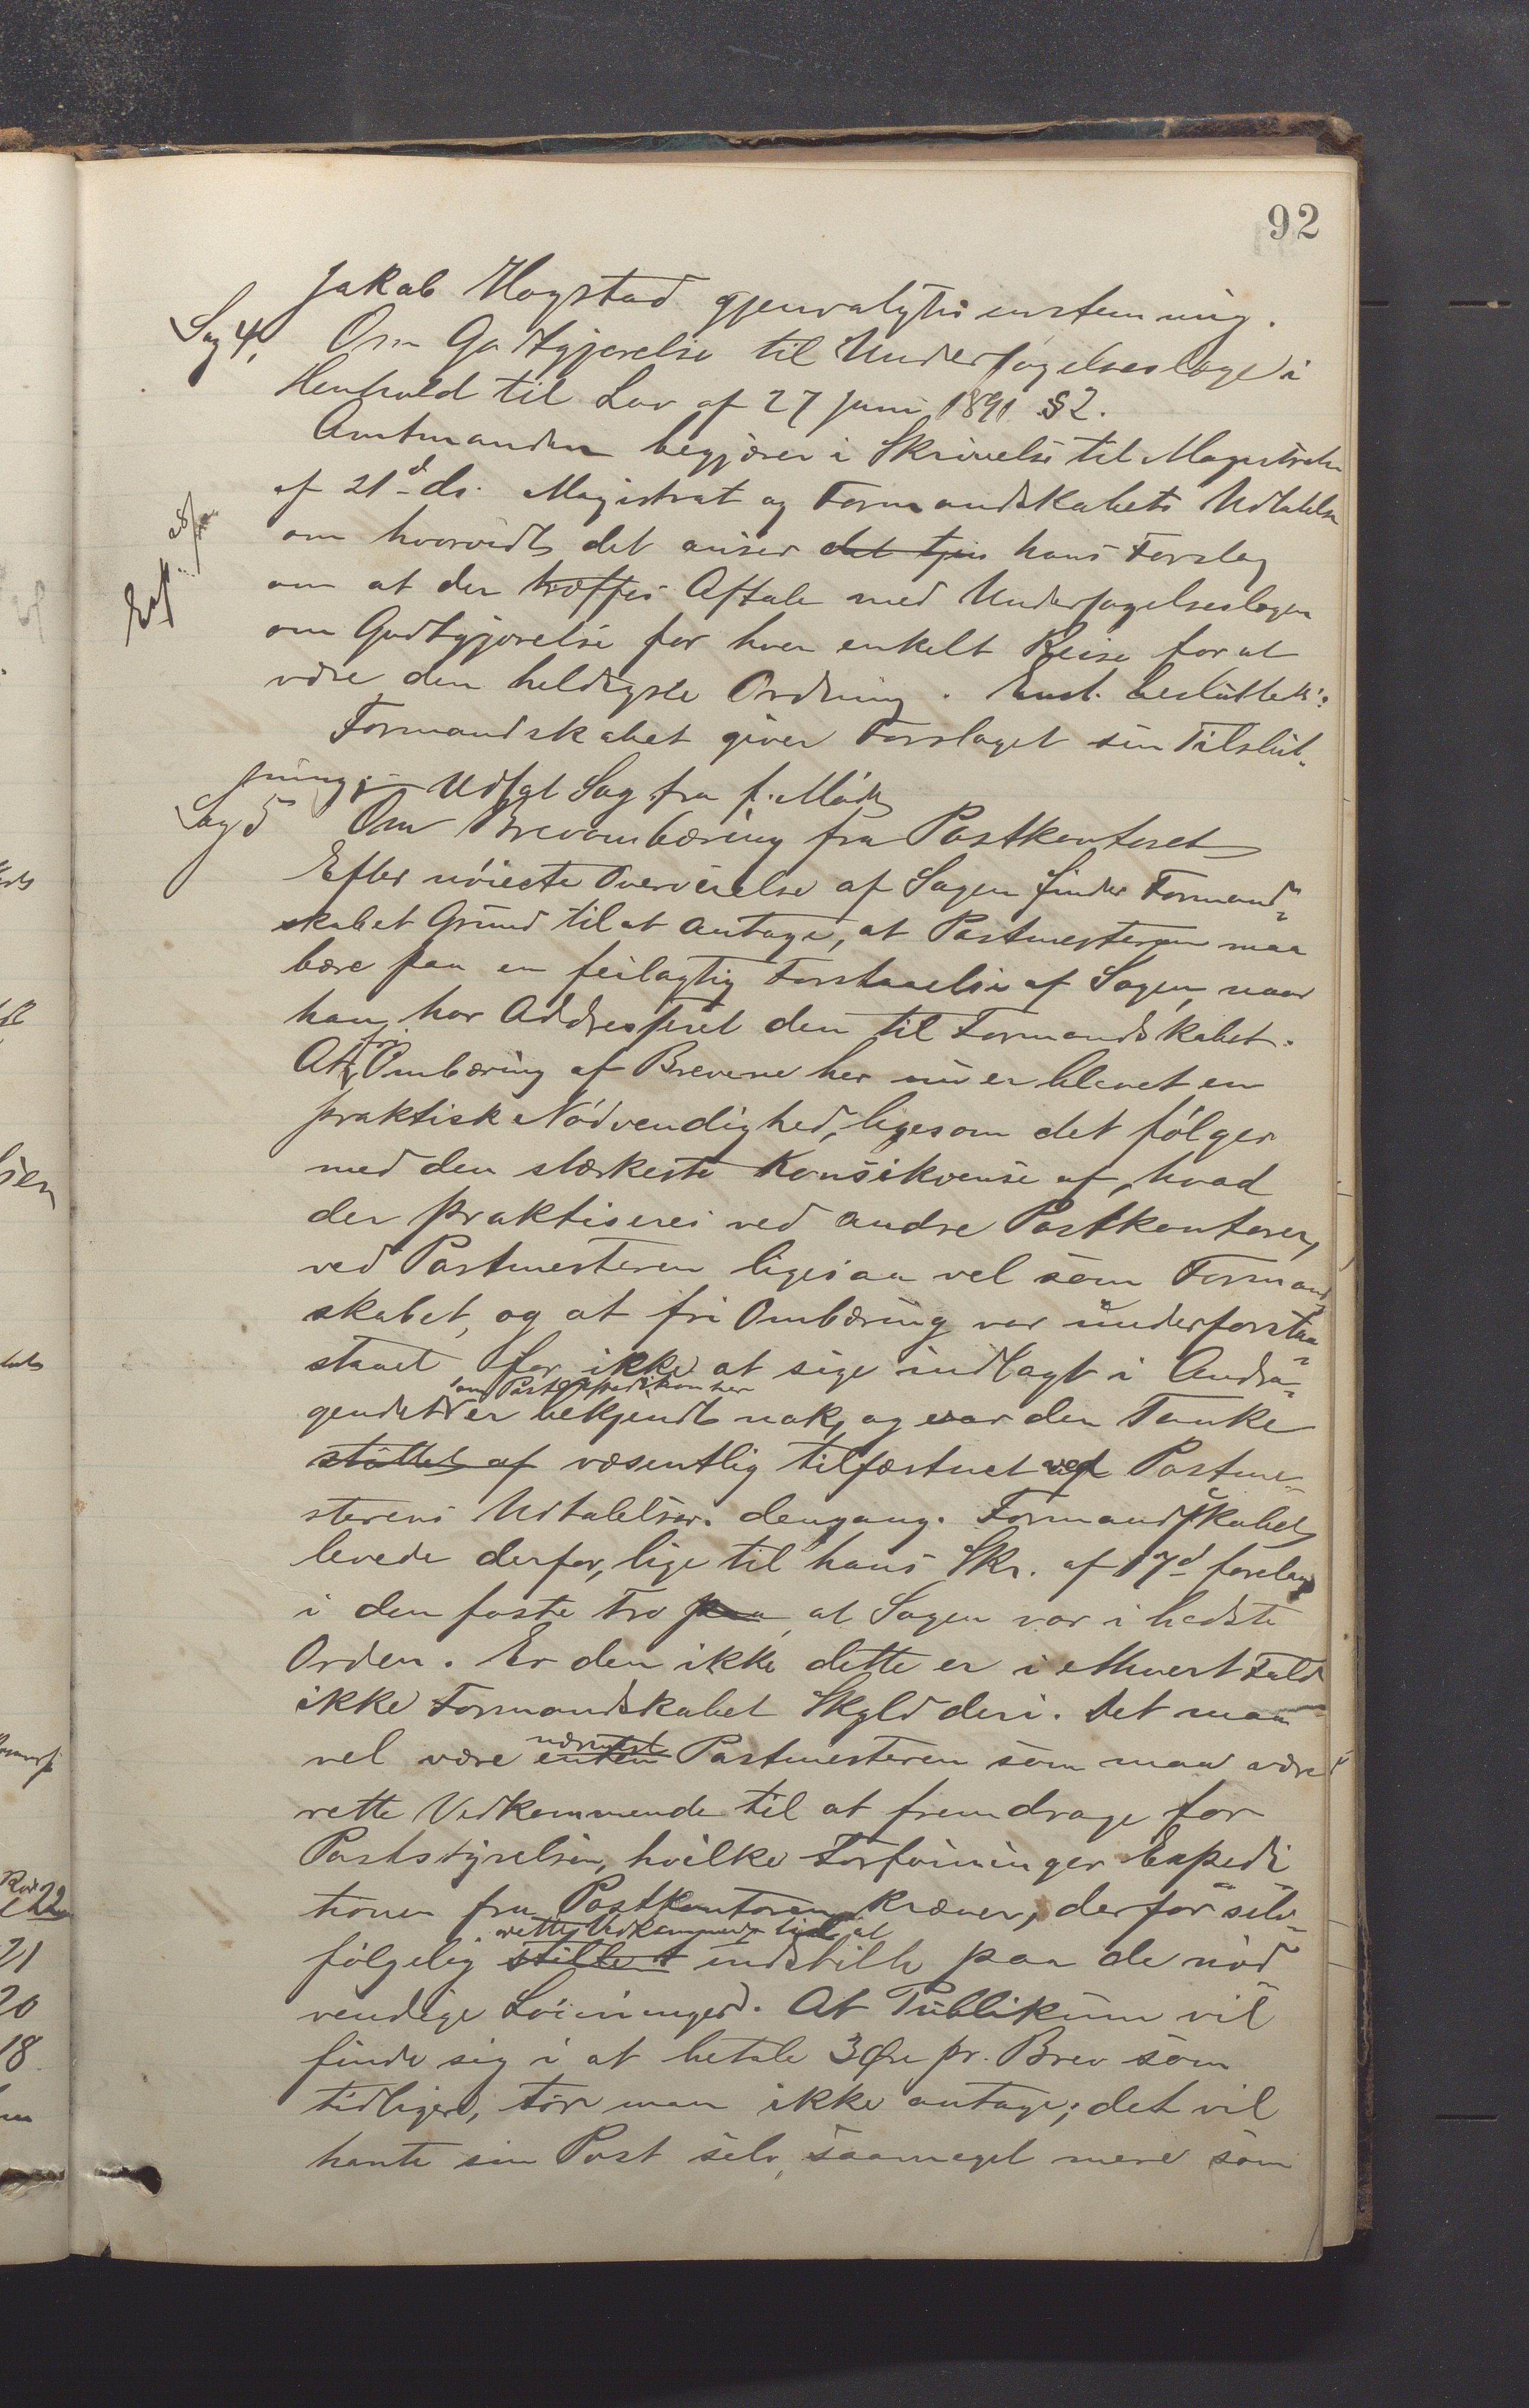 92
Jakab Hogstad gjenvalgtes enstemmig.
Sag 4, Om Godtgjørelse til Undersøgelseslæge i
Henhold til Lov af 27 Juni 1891 §2.
Amtmanden begjærer i Skrivelse til Magistraten
af 21d ds. Magistrat og Formandskabets Udtalelse
om hvorvidt det anser det hans Forslag
om at der træffes Aftale med Undersøgelseslægen
om Godtgjørelse for hver enkelt Reise for at
være den heldigste Ordning. Enst. besluttet:
Formandskabet giver Forslaget sin Tilslut-
ning. Udsat Sag fra f. Møde
Sag 5 Om Brevombæring fra Postkontoret
Efter nöieste Overveielse af Sagen finder Formand-
skabet Grund til at antage, at Postmesteren maa
bære paa en feilagtig Forstaaelse af Sagen, naar
han har Addresseret den til Formandskabet.
At fri Ombæring af Brevene her nu er blevet en
praktisk Nödvendighed, ligesom det fölger
med den stærkeste Konsekvense af, hvad
der praktiseres ved andre Postkontorer,
ved Postmesteren ligesaa vel som Formand-
skabet, og at fri Ombæring var underforstaa-
staaet for ikke at sige indlagt i Andra-
gendet om Postexpedition her er bekjendt nok, og var den Tanke
stöttet af væsentlig tilfæstnet ved Postme-
sterens Udtalelser dengang. Formandskabet
levede derfor, lige til hans Skr. af 17d
i den faste Tro paa, at Sagen var i bedste
Orden. Er den ikke dette er i ethvert Fald
ikke Formandskabet Skyld deri. Det maa
vel være enten nærmest Postmesteren som maa være
rette Vedkommende til at fremdrage for
Poststyrelsen, hvilke Forföininger Expedi
tionen fra Postkontoret kræver, derfor selv-
fölgelig stillet rette Vedkommende til at indstille paa de nöd
vendige Lönninger. At Publikum vil
finde sig i at betale 3 Øre pr. Brev som
tidligere, tör man ikke antage; det vil
hente sin Post selv, saameget mere som